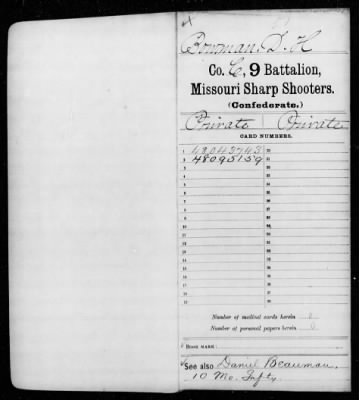 Bowman, D. H
Co. C, 9 Battalion,
Missouri Sharp Shooters.
(Confederate.)
Private Private
CARD NUMBERS.
1 48043743 20
2 48095159 21
3 22
4 23
5 24
6 25
7 26
8 27
9 28
10 29
11 30
12 31
13 32
14 33
15 34
16 35
17 36
18 37
19 38
Number of medical cards herein 0
Number of personal papers herein 0
BOOK MARK:
See also Daniel Beauman,
10 Mo. Infty.